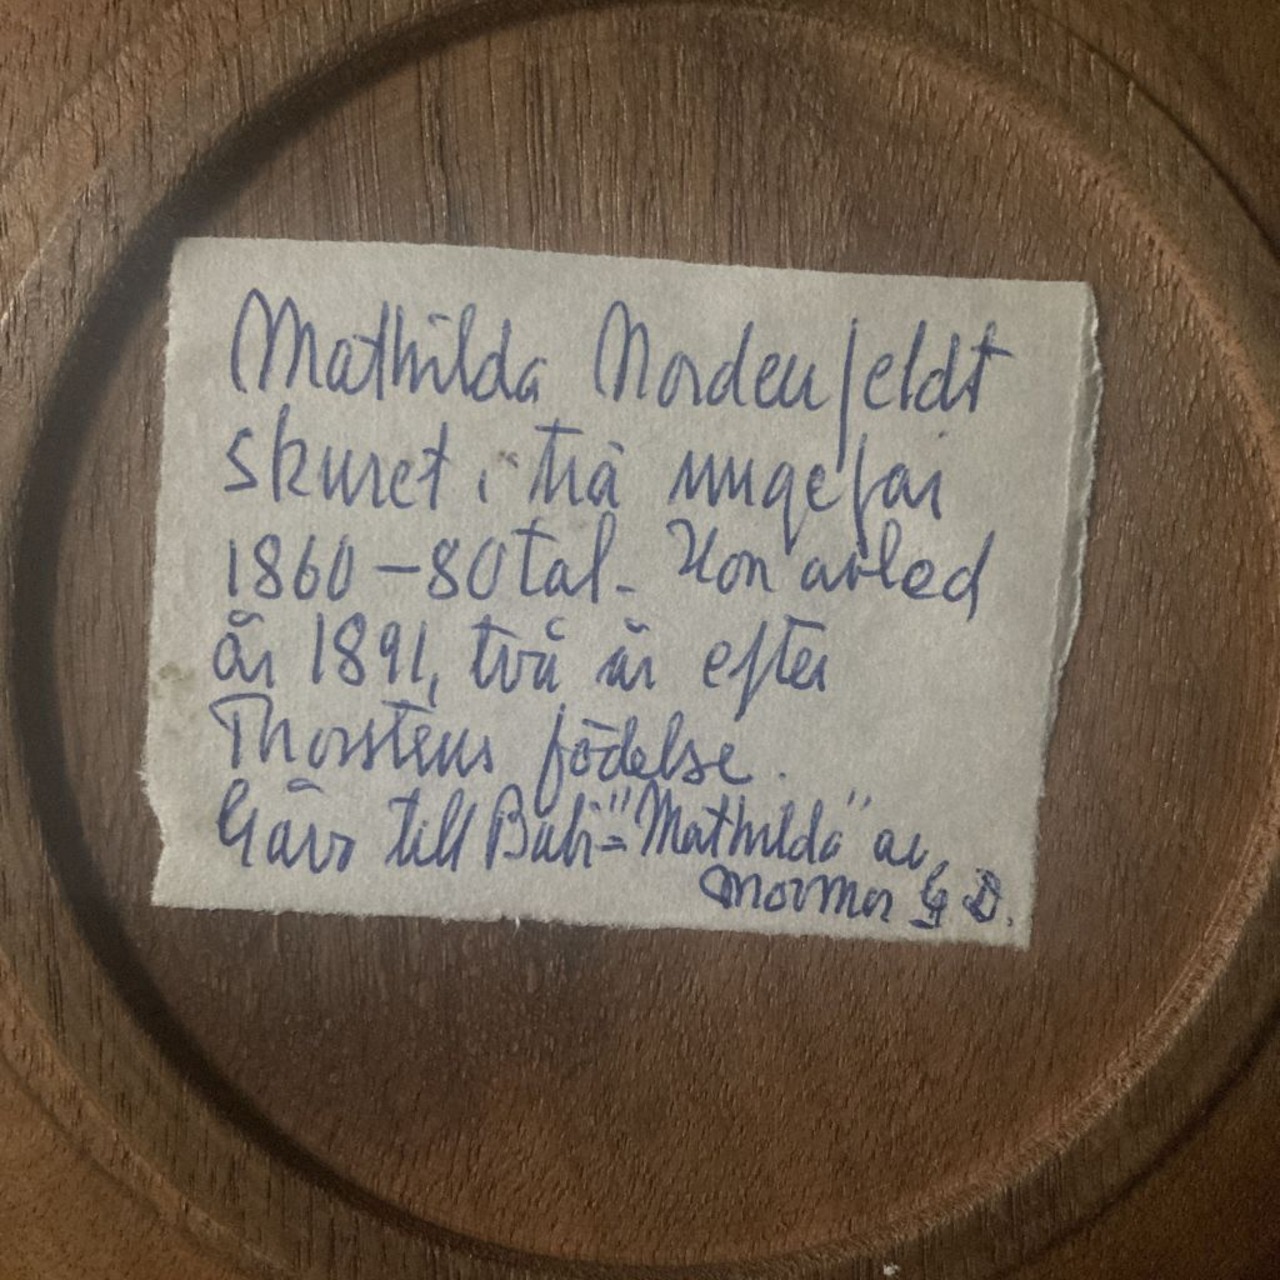 Mathilda Nordenfeldt
skuret i trä ungefär
1860-80 tal. Hon avled
år 1891, två år efter
Thorstens födelse.
Gåva till Bubi = "Mathilda" av
Mormor G D.